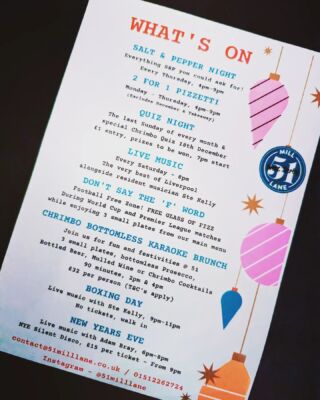 WHAT'S ON
SALT & PEPPER NIGHT
Everything S&P you could ask for!
Every Thursday, 4pm-9pm
2 FOR 1 PIZZETTI
Monday - Thursday, 4pm-9pm
(Excludes December & Takeaway)
QUIZ NIGHT
The last Sunday of every month &
special Chrimbo Quiz 18th December
£1 entry, prizes to be won, 7pm start
LIVE MUSIC
Every Saturday - 8pm
The very best of Liverpool
alongside resident musician Ste Kelly
DON'T SAY THE 'F' WORD
Football Free Zone! FREE GLASS OF FIZZ
During World Cup and Premier League matches
while enjoying 3 small plates from our main menu
CHRIMBO BOTTOMLESS KARAOKE BRUNCH
Join us for fun and festivities @ 51
3 small plates, bottomless Prosecco,
Bottled Beer, Mulled Wine or Chrimbo Cocktails
90 minutes, 2pm & 4pm
£32 per person (T&C's apply)
BOXING DAY
Live music with Ste Kelly, 9pm-11pm
No tickets, walk in
NEW YEARS EVE
Live music with Adam Bray, 6pm-8pm
NYE Silent Disco, £15 per ticket - From 9pm
contact@51milllane.co.uk / 01512262724
Instagram - @51milllane
MILL
51
LANE